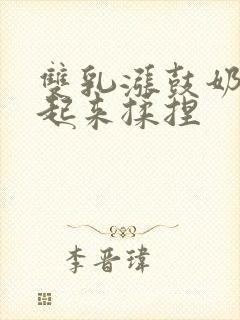 雙乳漲鼓奶
起來揉捏
李晋瑋